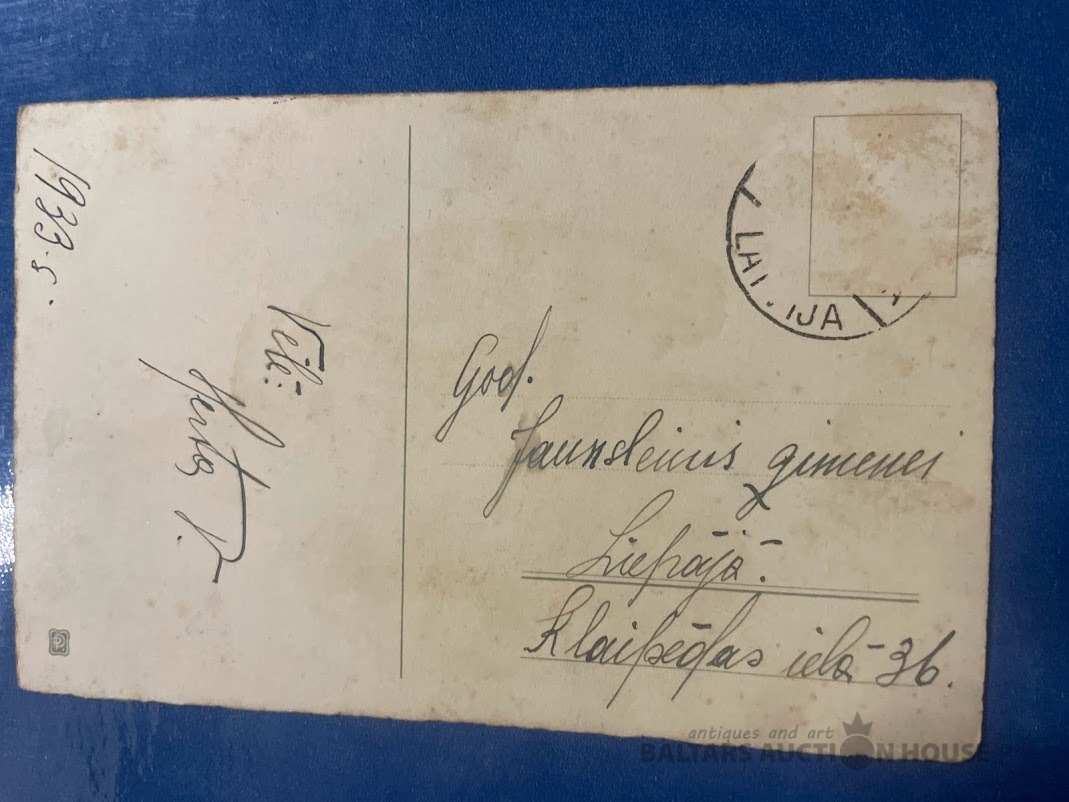 1933.5.
Vēlē:
Herta V.
LATVIJA
God.
Jaunsleinis ģimenei
Liepājā.
Klaipēdas ielā 36.
antiques and art
BALTARS AUCTION HOUSE